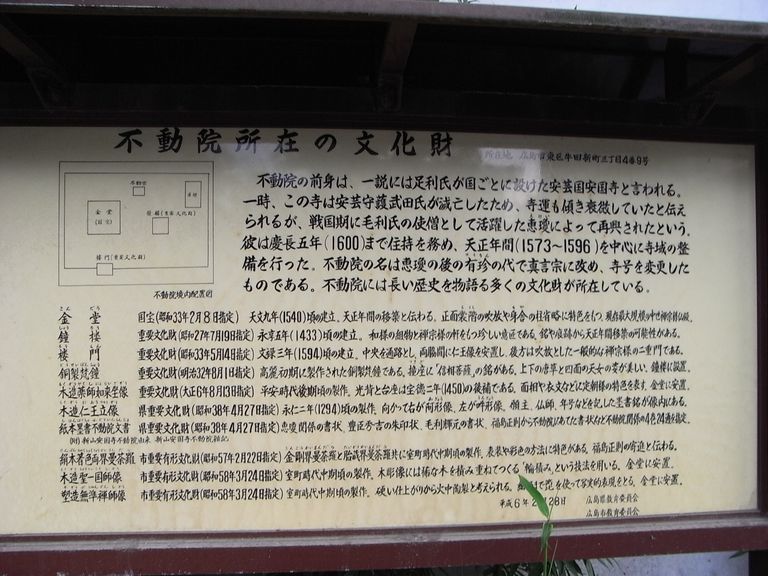 不動院所在の文化財
所在地 広島市東区牛田新町三丁目4番9号
不動院の前身は、一説には足利氏が国ごとに設けた安芸国安国寺と言われる。
一時、この寺は安芸守護武田氏が滅亡したため、寺運も傾き衰微していたと伝え
られるが、戦国期に毛利氏の使僧として活躍した恵瓊によって再興されたという。
彼は慶長五年(1600)まで住持を務め、天正年間(1573〜1596)を中心に寺域の整
備を行った。不動院の名は恵瓊の後の宥珍の代で真言宗に改め、寺号を変更した
ものである。不動院には長い歴史を物語る多くの文化財が所在している。
金堂
(国宝)
鐘楼(重要文化財)
楼門(重要文化財)
不動院境内配置図
金堂 国宝(昭和33年2月8日指定) 天文九年(1540)頃の建立、天正年間の移築と伝わる。正面裳階の吹放や身舎の柱省略に特色をもつ、現存最大規模の中世禅宗様仏殿。
鐘楼 重要文化財(昭和27年7月19日指定) 永享五年(1433)頃の建立。和様の組物と禅宗様の軒をもつ珍しい意匠である。銘や痕跡から天正年間移築の可能性がある。
楼門 重要文化財(昭和33年5月14日指定) 文禄三年(1594)頃の建立。中央を通路とし、両脇間に仁王像を安置し、後方は吹放とした一般的な禅宗様の二重門である。
銅製梵鐘 重要文化財(明治32年8月1日指定) 高麗初期に製作された銅製梵鐘である。撞座に「信相菩薩」の銘がある。上下の唐草と四面の天女の姿が美しい。鐘楼に設置。
木造薬師如来坐像 重要文化財(大正6年8月13日指定) 平安時代後期頃の製作。光背と台座は宝徳二年(1450)の後補である。面相や衣文などに定朝様の特色を表す。金堂に安置。
木造仁王立像 県重要文化財(昭和38年4月27日指定) 永仁二年(1294)頃の製作。向かって右が阿形像、左が吽形像。願主、仏師、年号などを記した墨書銘が像内にある。
紙本墨書不動院文書 県重要文化財(昭和38年4月27日指定) 恵瓊関係の書状、豊臣秀吉の朱印状、毛利輝元の書状、福島正則から不動院にあてた書状など不動院関係の4巻24通を指定。
(附)新山安国寺不動院由来 新山安国寺不動院雑記
絹本著色両界曼荼羅 市重要有形文化財(昭和57年2月22日指定) 金剛界曼荼羅と胎蔵界曼荼羅共に室町時代中頃の製作。表装や彩色の方法に特色がある。福島正則の寄進と伝わる。
木造聖一国師像 市重要有形文化財(昭和58年3月24日指定) 室町時代中頃の製作。木彫像には稀な木を積み重ねてつくる"輪積み"という技法を用いる。金堂に安置。
塑造無準禅師像 市重要有形文化財(昭和58年3月24日指定) 室町時代中期頃の製作。硬い仕上がりから火中陶製と考えられる。 を使って写実的表現をとる。金堂に安置。
平成6年2月28日
広島県教育委員会
広島市教育委員会